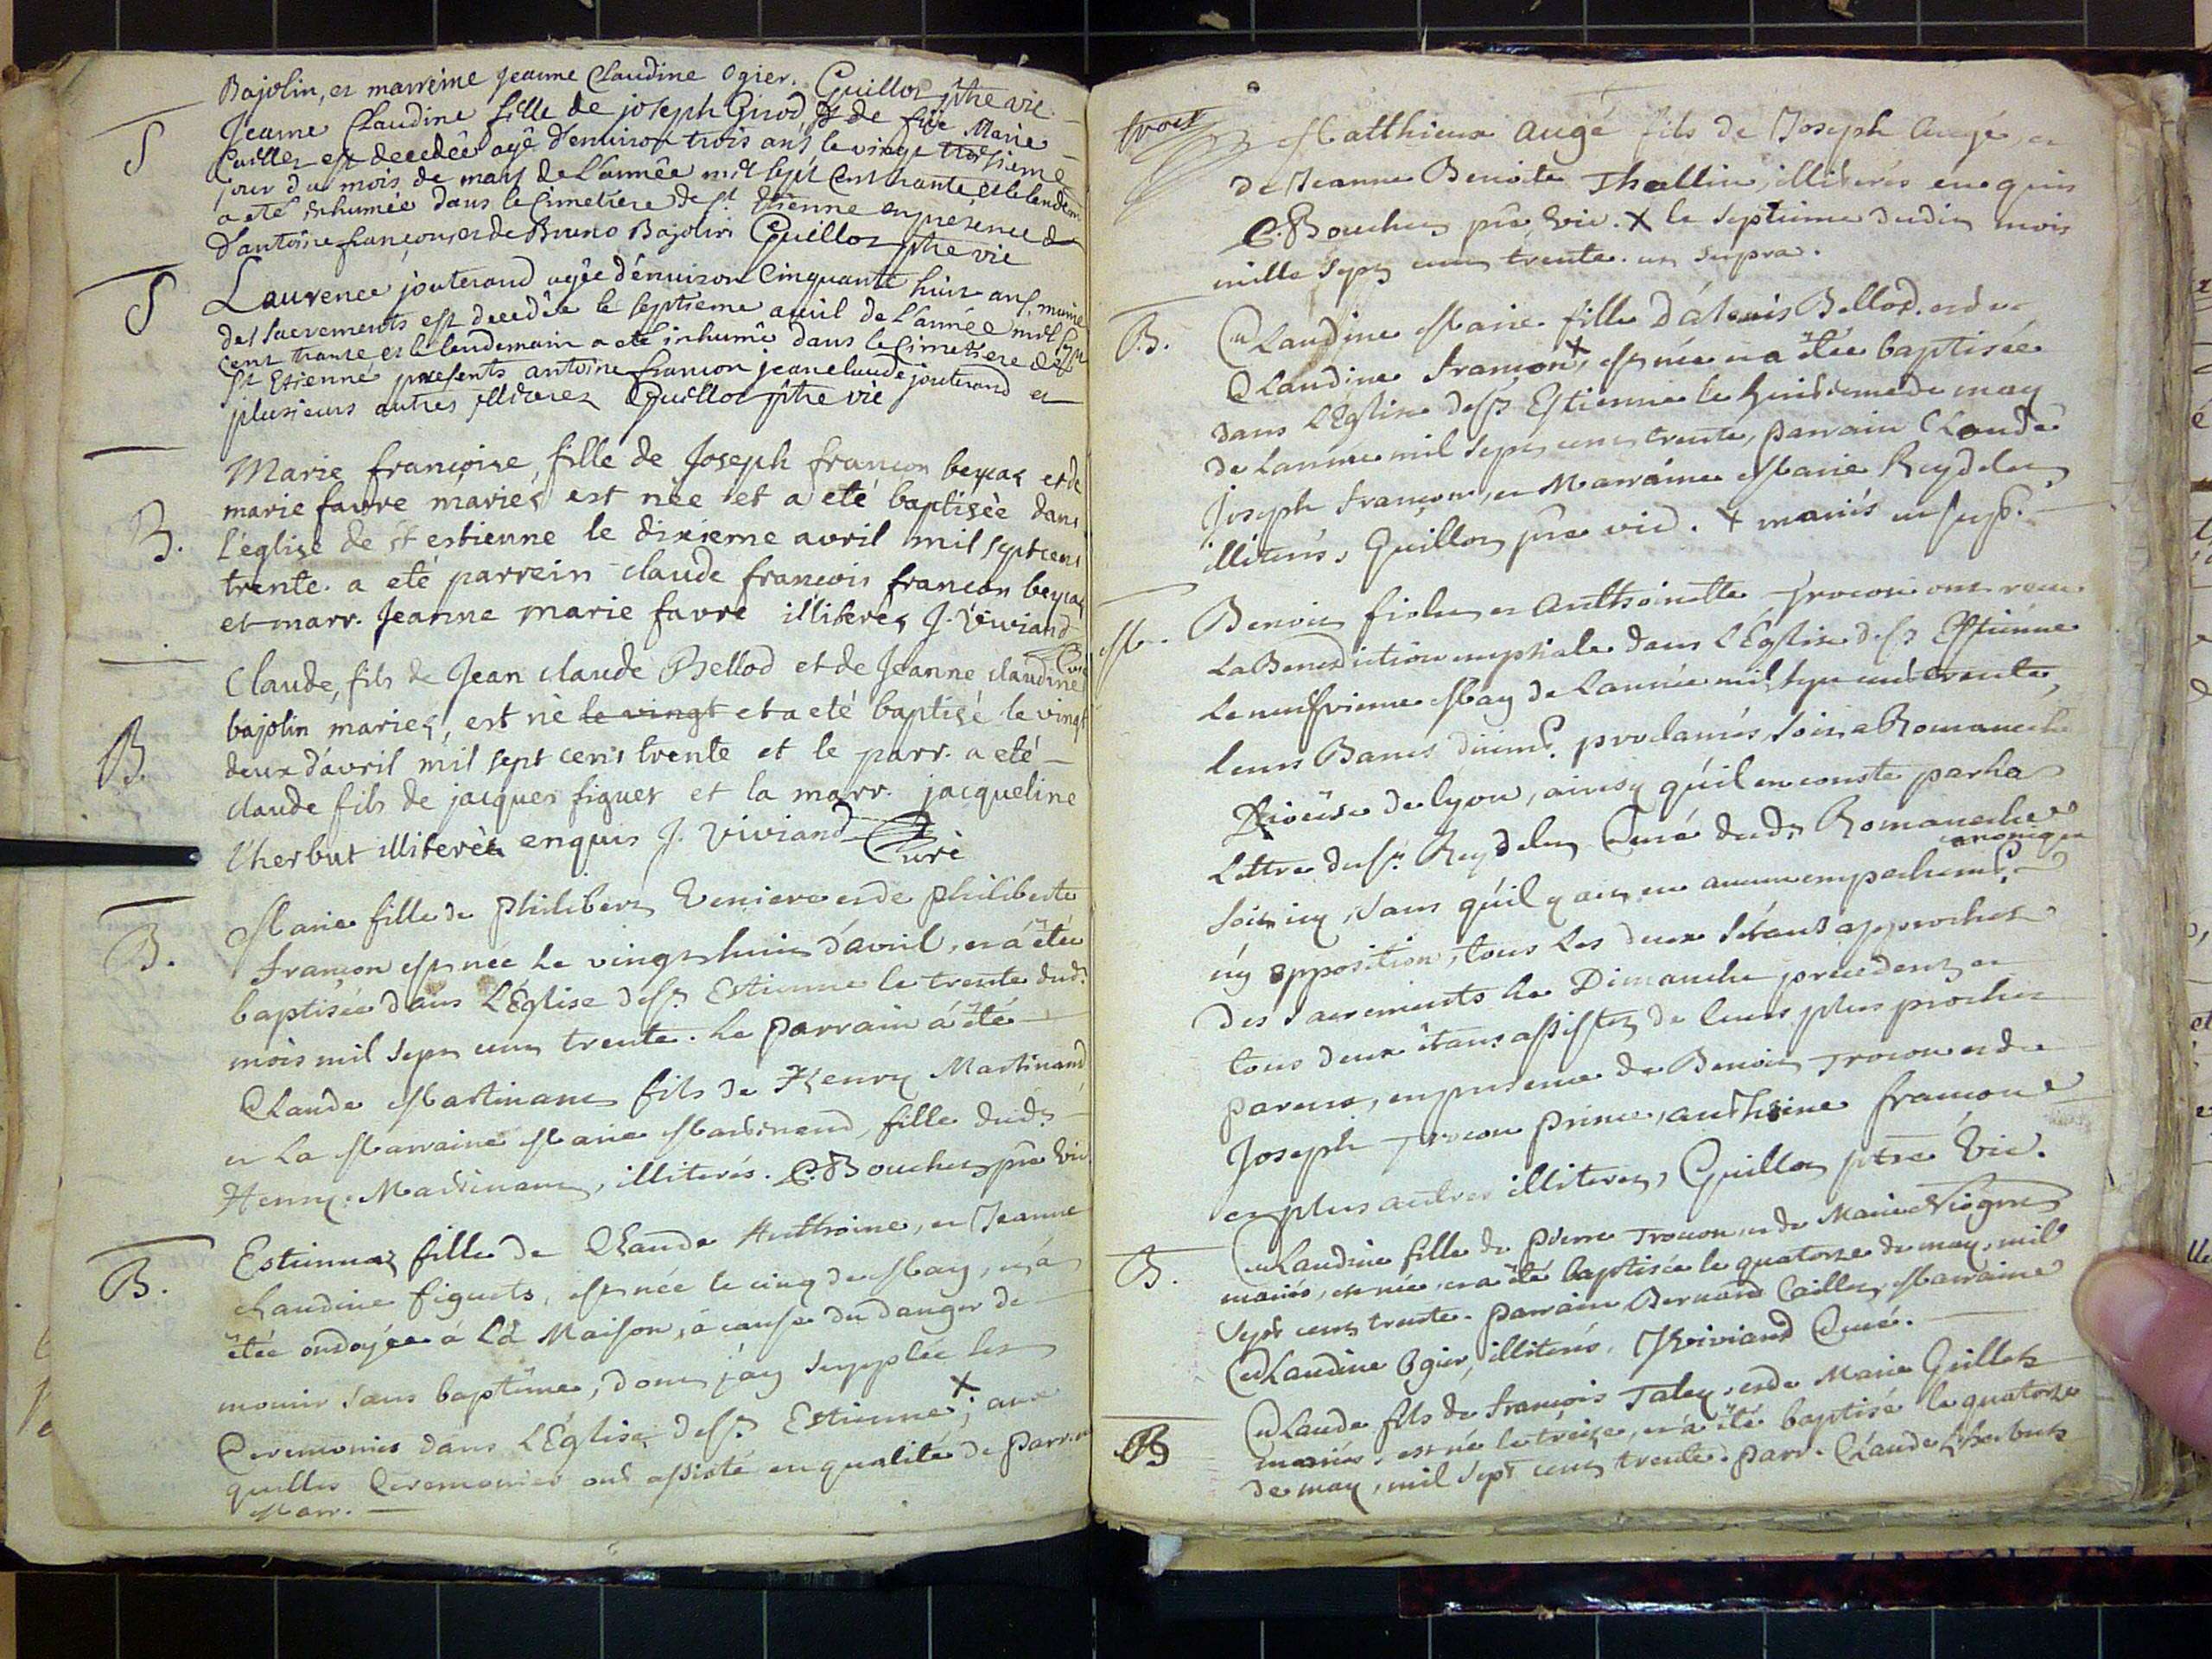 Bajolin, et marreine Jeanne Claudine Ogier. Guillot ptre vic
S
Jeanne Claudine fille de joseph Girod, et de füe Marie
Caillet est decedêe agê d'environ trois ans le vingt troisieme
jour du mois de mars de L'annêe mil sept Cent trante et le lendem
a eté inhumée dans le Cimetiere de st Etienne en présence de
d'antoine françon, et de Bruno Bajolin Guillot ptre vic
S
Laurence jouterand agêe d'environ Cinquante huit ans, munie
des sacrements est decedêe le septieme avril de L'année mil sept
cent trante et le lendemain a eté inhumê dans le Cimetiere de
st Etienne presents antoine françon jean claude jouterand et
plusieurs autres illiterez Guillot ptre vic
B.
Marie françoise, fille de Joseph françon beycat et de
marie favre mariés est nèe et a eté baptisèe dans
l'eglise de st estienne le dixieme avril mil sept cens
trente. a eté parrein claude francois françon beycat
et marr. Jeanne marie favre illiterés J. Viviand
Curé
B.
Claude, fils de Jean claude Bellod et de Jeanne claudine
bajolin mariés, est nè le vingt et a eté baptisé le vingt
deux d'avril mil sept cens trente et le parr. a eté
claude fils de jacques figuet et la marr. jacqueline
l'herbut illiterès enquis J. Viviand Curè
B.
Marie fille de Philibert Veniere et de philiberte
françon est née le vingt huit d'avril, et á êtée
baptisée dans L'Église de st Estienne le trente dud.
mois mil sept cent trente. Le parrain á êté
Claude Martinant fils de Henry Martinand
et La Marraine Marie Martinand, fille dud.
Henry Martinant, illiterés. C. Bouchet ptre Vic
B.
Estiennaz fille de Claude Anthoine, et Jeanne
Claudine figuets, est née le cinq de May, et á
êtée ondoyée á Lá Maison, à cause du danger de
mourir sans baptême, dont j'ay supplée les
Ceremonies dans L'Église de st Estienne x; aux
quelles Ceremonies ont assisté en qualité de Parrain
Marr.
trois
x Matthieux Augé fils de Joseph Augé, et
de Jeanne Benoite Thollin, illiterés enquis
C. Bouchet ptre, Vic. x le septieme dudit mois
mille sept cent trente. ut supra.
B.
Claudine Marie fille d'álexis Bellod. et de
Claudine françon x, est née et a êtée baptisée
dans L'Église de st Estienne le huitieme de may
de Lannée mil sept cent trente, parrain Claude
Joseph françon, et Marraine Marie Reydelet
illiterés, Guillot ptre vic. x mariés ut sup.
M.
Benoit fiolet et Anthoinette Trocon ont reçeu
La Benediction nuptiale dans L'Église de st Estienne
Le neufvieme May de Lannée mil sept cent trente,
leurs Bancs duëmt. proclamés soit a Romaneche
Diocêse de lyon, ainsy qu'il en conste par la
Lettre du sr. Reydelet Curé dudt Romaneche
soit icy, sans qu'il y ait eu aucun empechemt. canonique
ny opposition, tous les deux s'étant approchez
des sacrements le Dimanche precedent et
tous deux étant assistez de leurs plus proches
parens, en presence de Benoit Trocon et de
Joseph Trocon Prince, Anthoine françon
et plus autres illiterez, Guillot ptre Vic.
B.
Claudine fille de pierre Trocon, et de Marie Viognet
mariés, est née, et a êté baptisée le quatorze de may, mil
sept cent trente. parrain Bernard Caillet, Marraine
Claudine Ogier, illiterés, J. Viviand Curé.
B
Claude fils de françois Taley, et de Marie Guillot
mariés, est né le treize, et á êté baptisé le quatorze
de may, mil sept cent trente. parr. Claude Lherbut